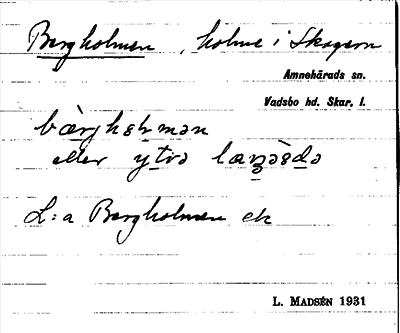 Bergholmen, holme i Skagern
Amnehärads sn.
Vadsbo hd. Skar. l.
bærghɵlmən
eller ytrə læŋəsdə
L:a Bergholmen ek
L. MADSÉN 1931